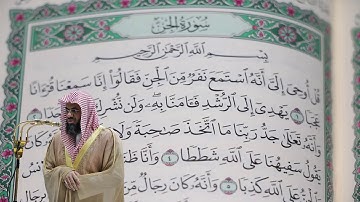 سُورَةُ الجِنِّ
بِسْمِ اللَّهِ الرَّحْمَٰنِ الرَّحِيمِ
قُلْ أُوحِيَ إِلَيَّ أَنَّهُ اسْتَمَعَ نَفَرٌ مِّنَ الْجِنِّ فَقَالُوا إِنَّا سَمِعْنَا قُرْآنًا
عَجَبًا ١ يَهْدِي إِلَى الرُّشْدِ فَآمَنَّا بِهِ وَلَن نُّشْرِكَ
وَأَنَّهُ تَعَالَىٰ جَدُّ رَبِّنَا مَا اتَّخَذَ صَاحِبَةً وَلَا
كَانَ يَقُولُ سَفِيهُنَا عَلَى اللَّهِ شَطَطًا ٤ وَأَنَّا ظَنَنَّا
عَلَى اللَّهِ كَذِبًا ٥ وَأَنَّهُ كَانَ رِجَالٌ مِّنَ